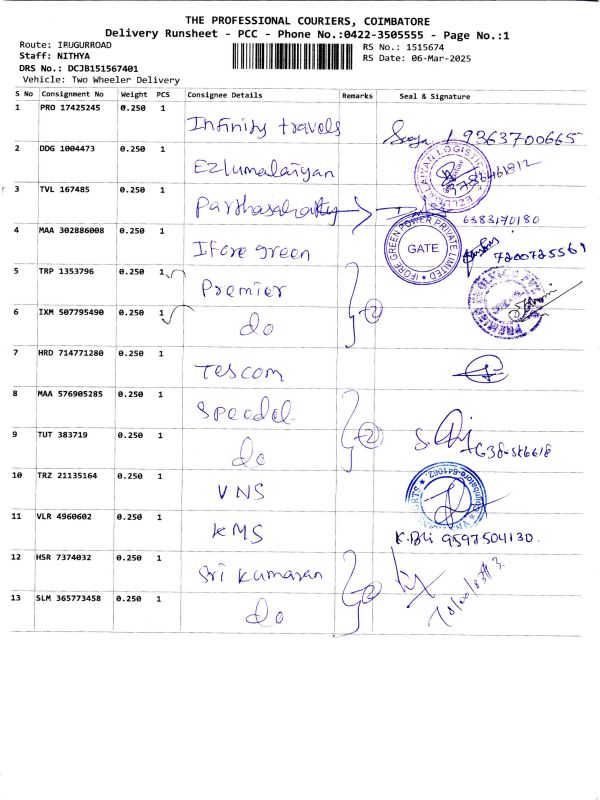 THE PROFESSIONAL COURIERS, COIMBATORE
Delivery Runsheet - PCC - Phone No.:0422-3505555 - Page No.:1
Route: IRUGURROAD
RS No.: 1515674
Staff: NITHYA
RS Date: 06-Mar-2025
DRS No.: DCJB151567401
Vehicle: Two Wheeler Delivery
S No Consignment No Weight PCS Consignee Details Remarks Seal & Signature
1 PRO 17425245 0.250 1 Infinity travels 9363700665
2 DDG 1004473 0.250 1 Ezlumalaiyan
3 TVL 167485 0.250 1 Parthasarathy 6383170180
4 MAA 302886008 0.250 1 IFore green IFORE GREEN POWER PRIVATE LIMITED GATE 7200725561
5 TRP 1353796 0.250 1 Premier
6 IXM 507795490 0.250 1 do 2
7 HRD 714771280 0.250 1 Tescom
8 MAA 576905285 0.250 1 Speedel
9 TUT 383719 0.250 1 do 2
10 TRZ 21135164 0.250 1 VNS
11 VLR 4960602 0.250 1 KMS 9597504130
12 HSR 7374032 0.250 1 Sri kumaran
13 SLM 365773458 0.250 1 do